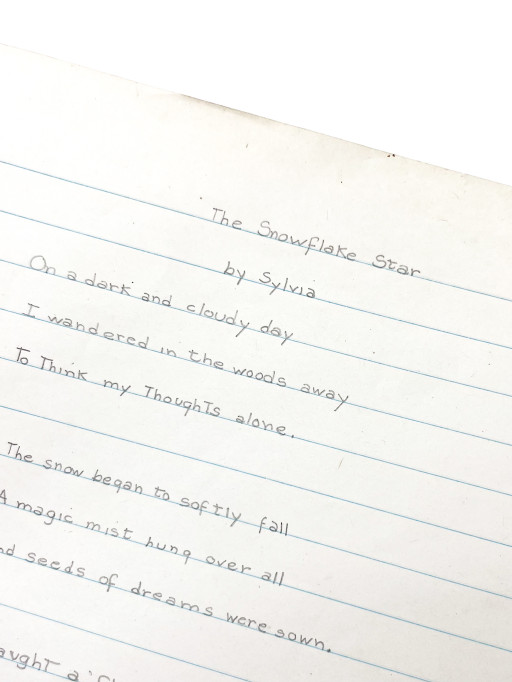 The Snowflake Star
by Sylvia
On a dark and cloudy day
I wandered in the woods away
To Think my Thoughts alone.
The snow began to softly fall
A magic mist hung over all
seeds of dreams were sown.
a